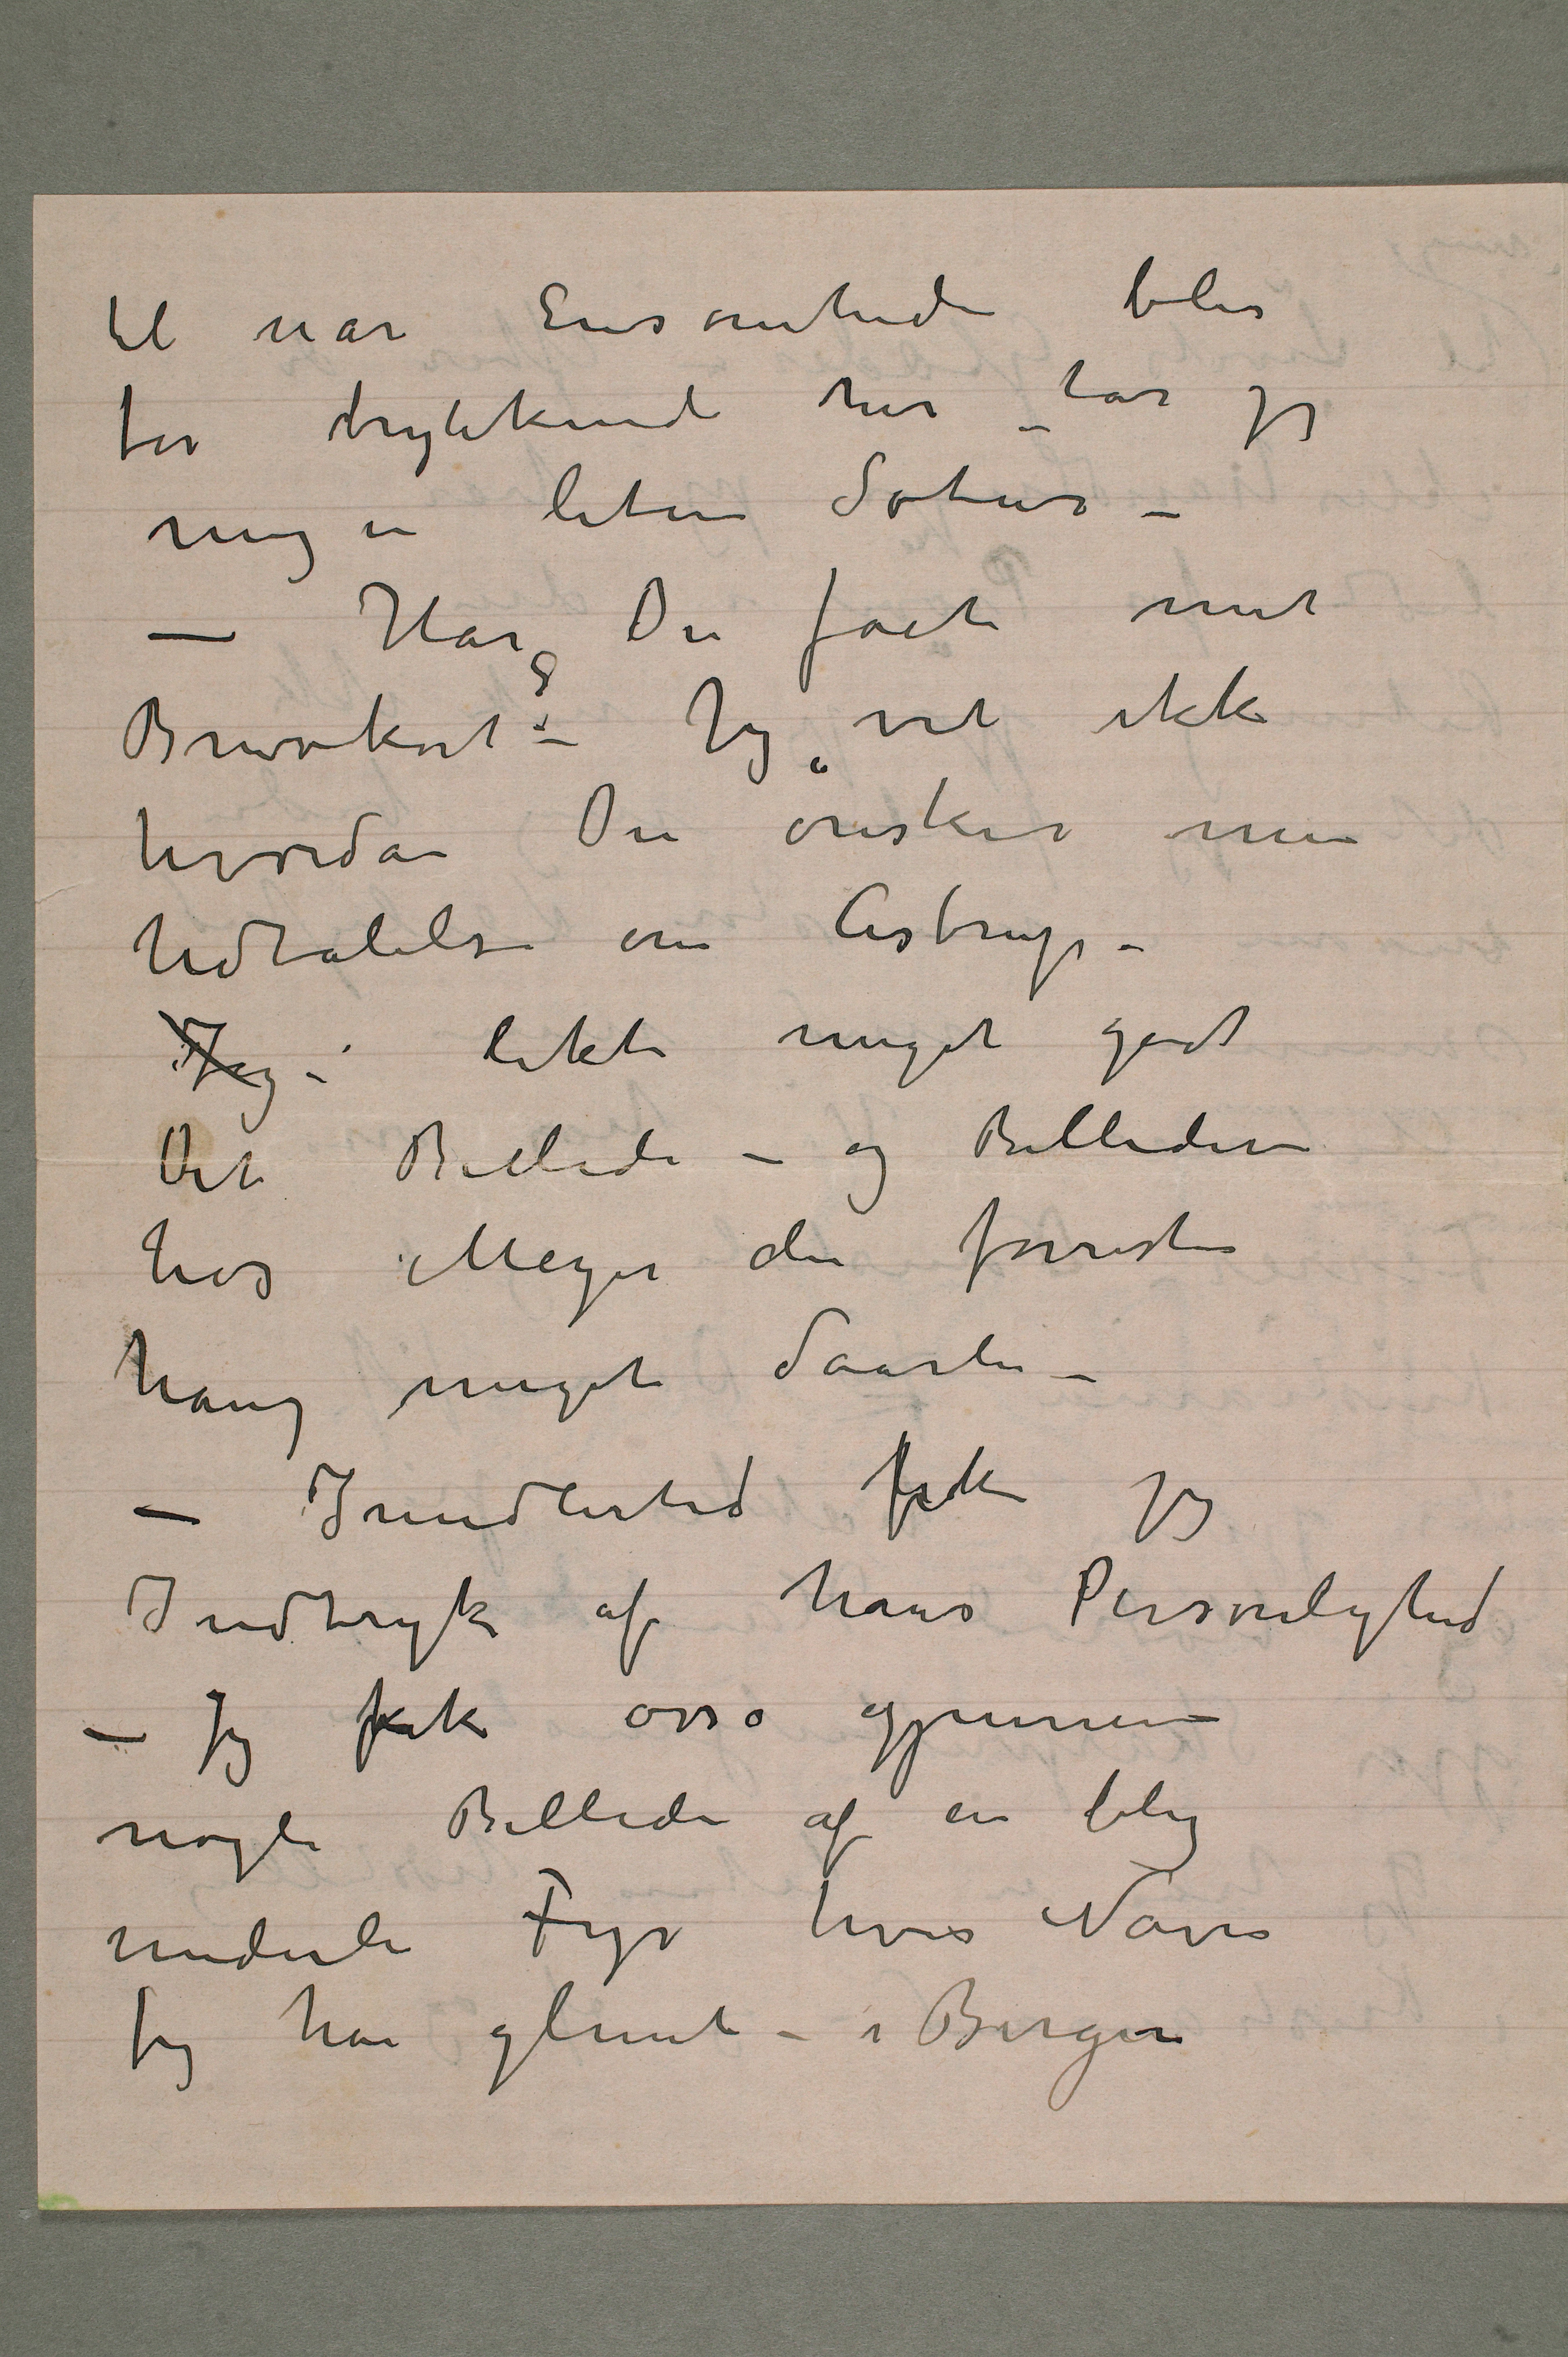 til når Ensomheden blir
for trykkende her – tar jeg
mig en liten Sotur –
— Har Du fået mit
Brevkort? – Jeg vet ikke
hvordan Du ønsker min
Udtalelse om Astrup –
Jeg – likte meget godt
Dit Billede – og Billederne
hos Meyer der forresten
hang meget daarli –
— Imidlertid fik jeg
Indtryk af hans Personlighed
— Jeg fik også gjennem
nogle Billeder af en bleg
underli Fyr hvis Navn
jeg har glemt – i Bergen